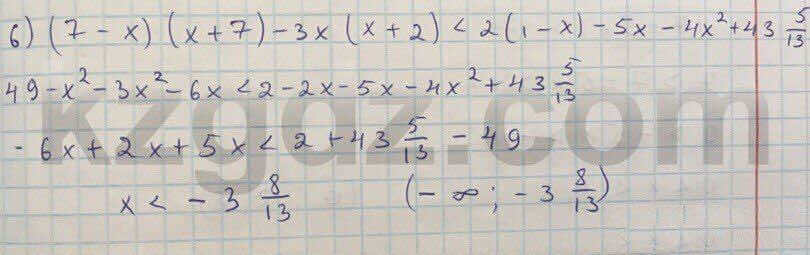 6) (7 - x) (x + 7) - 3x (x + 2) < 2 (1 - x) - 5x - 4x² + 43 5/13
49 - x² - 3x² - 6x < 2 - 2x - 5x - 4x² + 43 5/13
- 6x + 2x + 5x < 2 + 43 5/13 - 49
x < - 3 8/13 (- ∞; - 3 8/13)
kzgdz.com